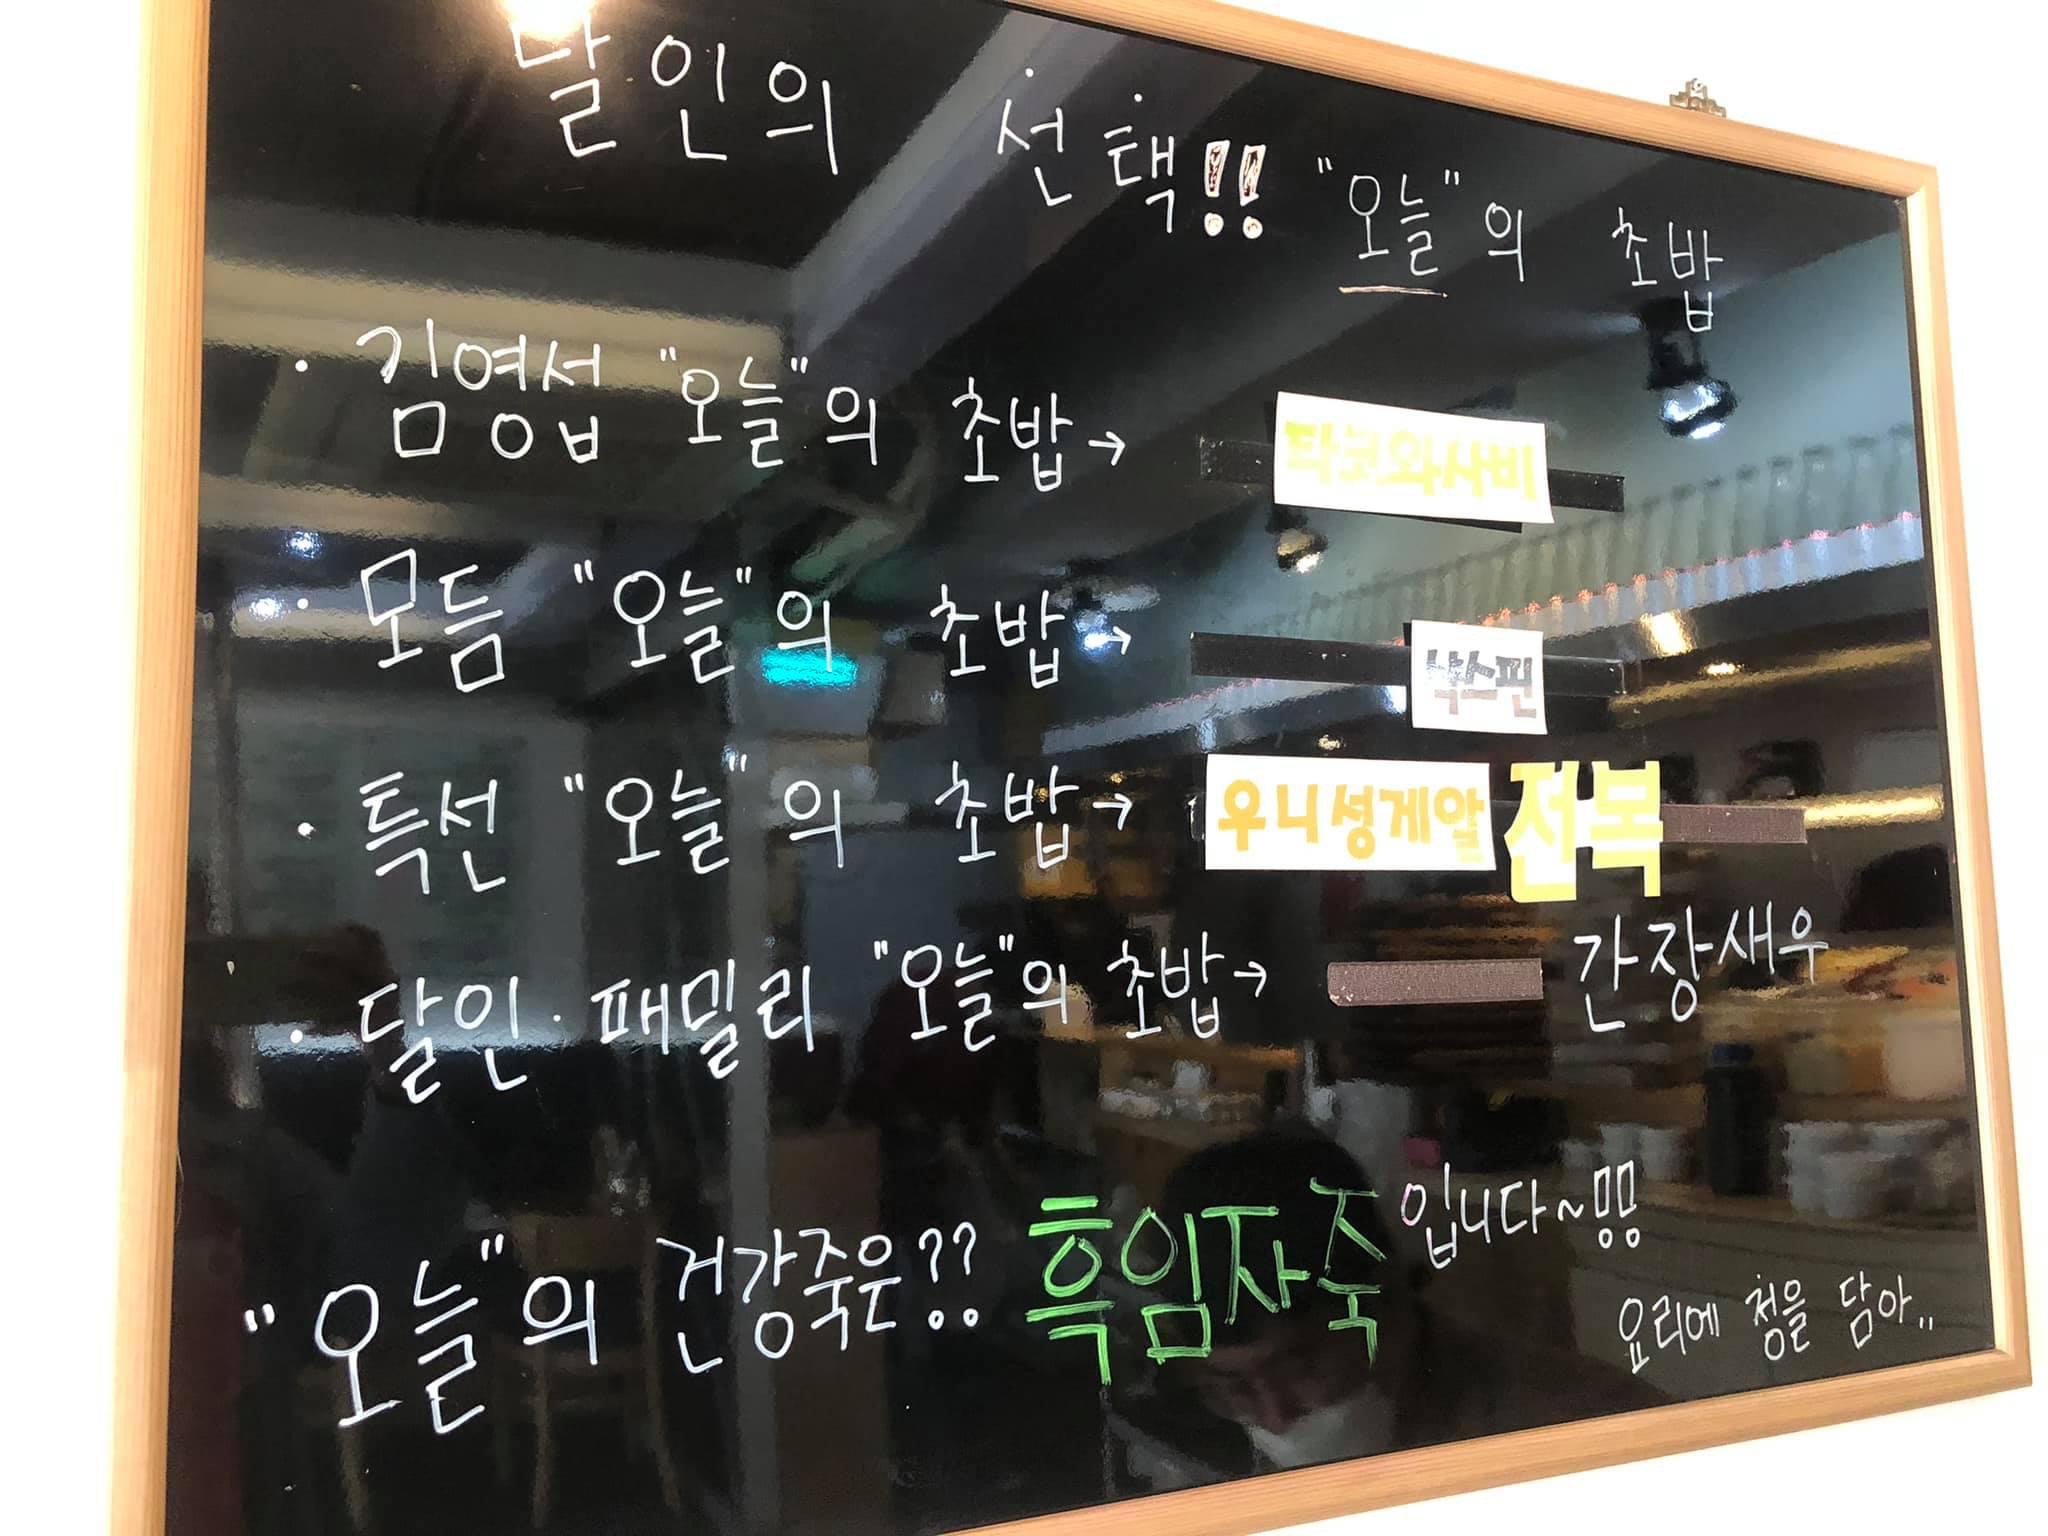 달인의 선택!! "오늘"의 초밥
· 김영섭 "오늘"의 초밥→ 타코와사비
· 모듬 "오늘"의 초밥→ 삭스핀
· 특선 "오늘"의 초밥→ 우니성게알 전복
· 달인·패밀리 "오늘"의 초밥→ 간장새우
"오늘"의 건강죽은?? 흑임자죽 입니다~!!
요리에 청을 담아..